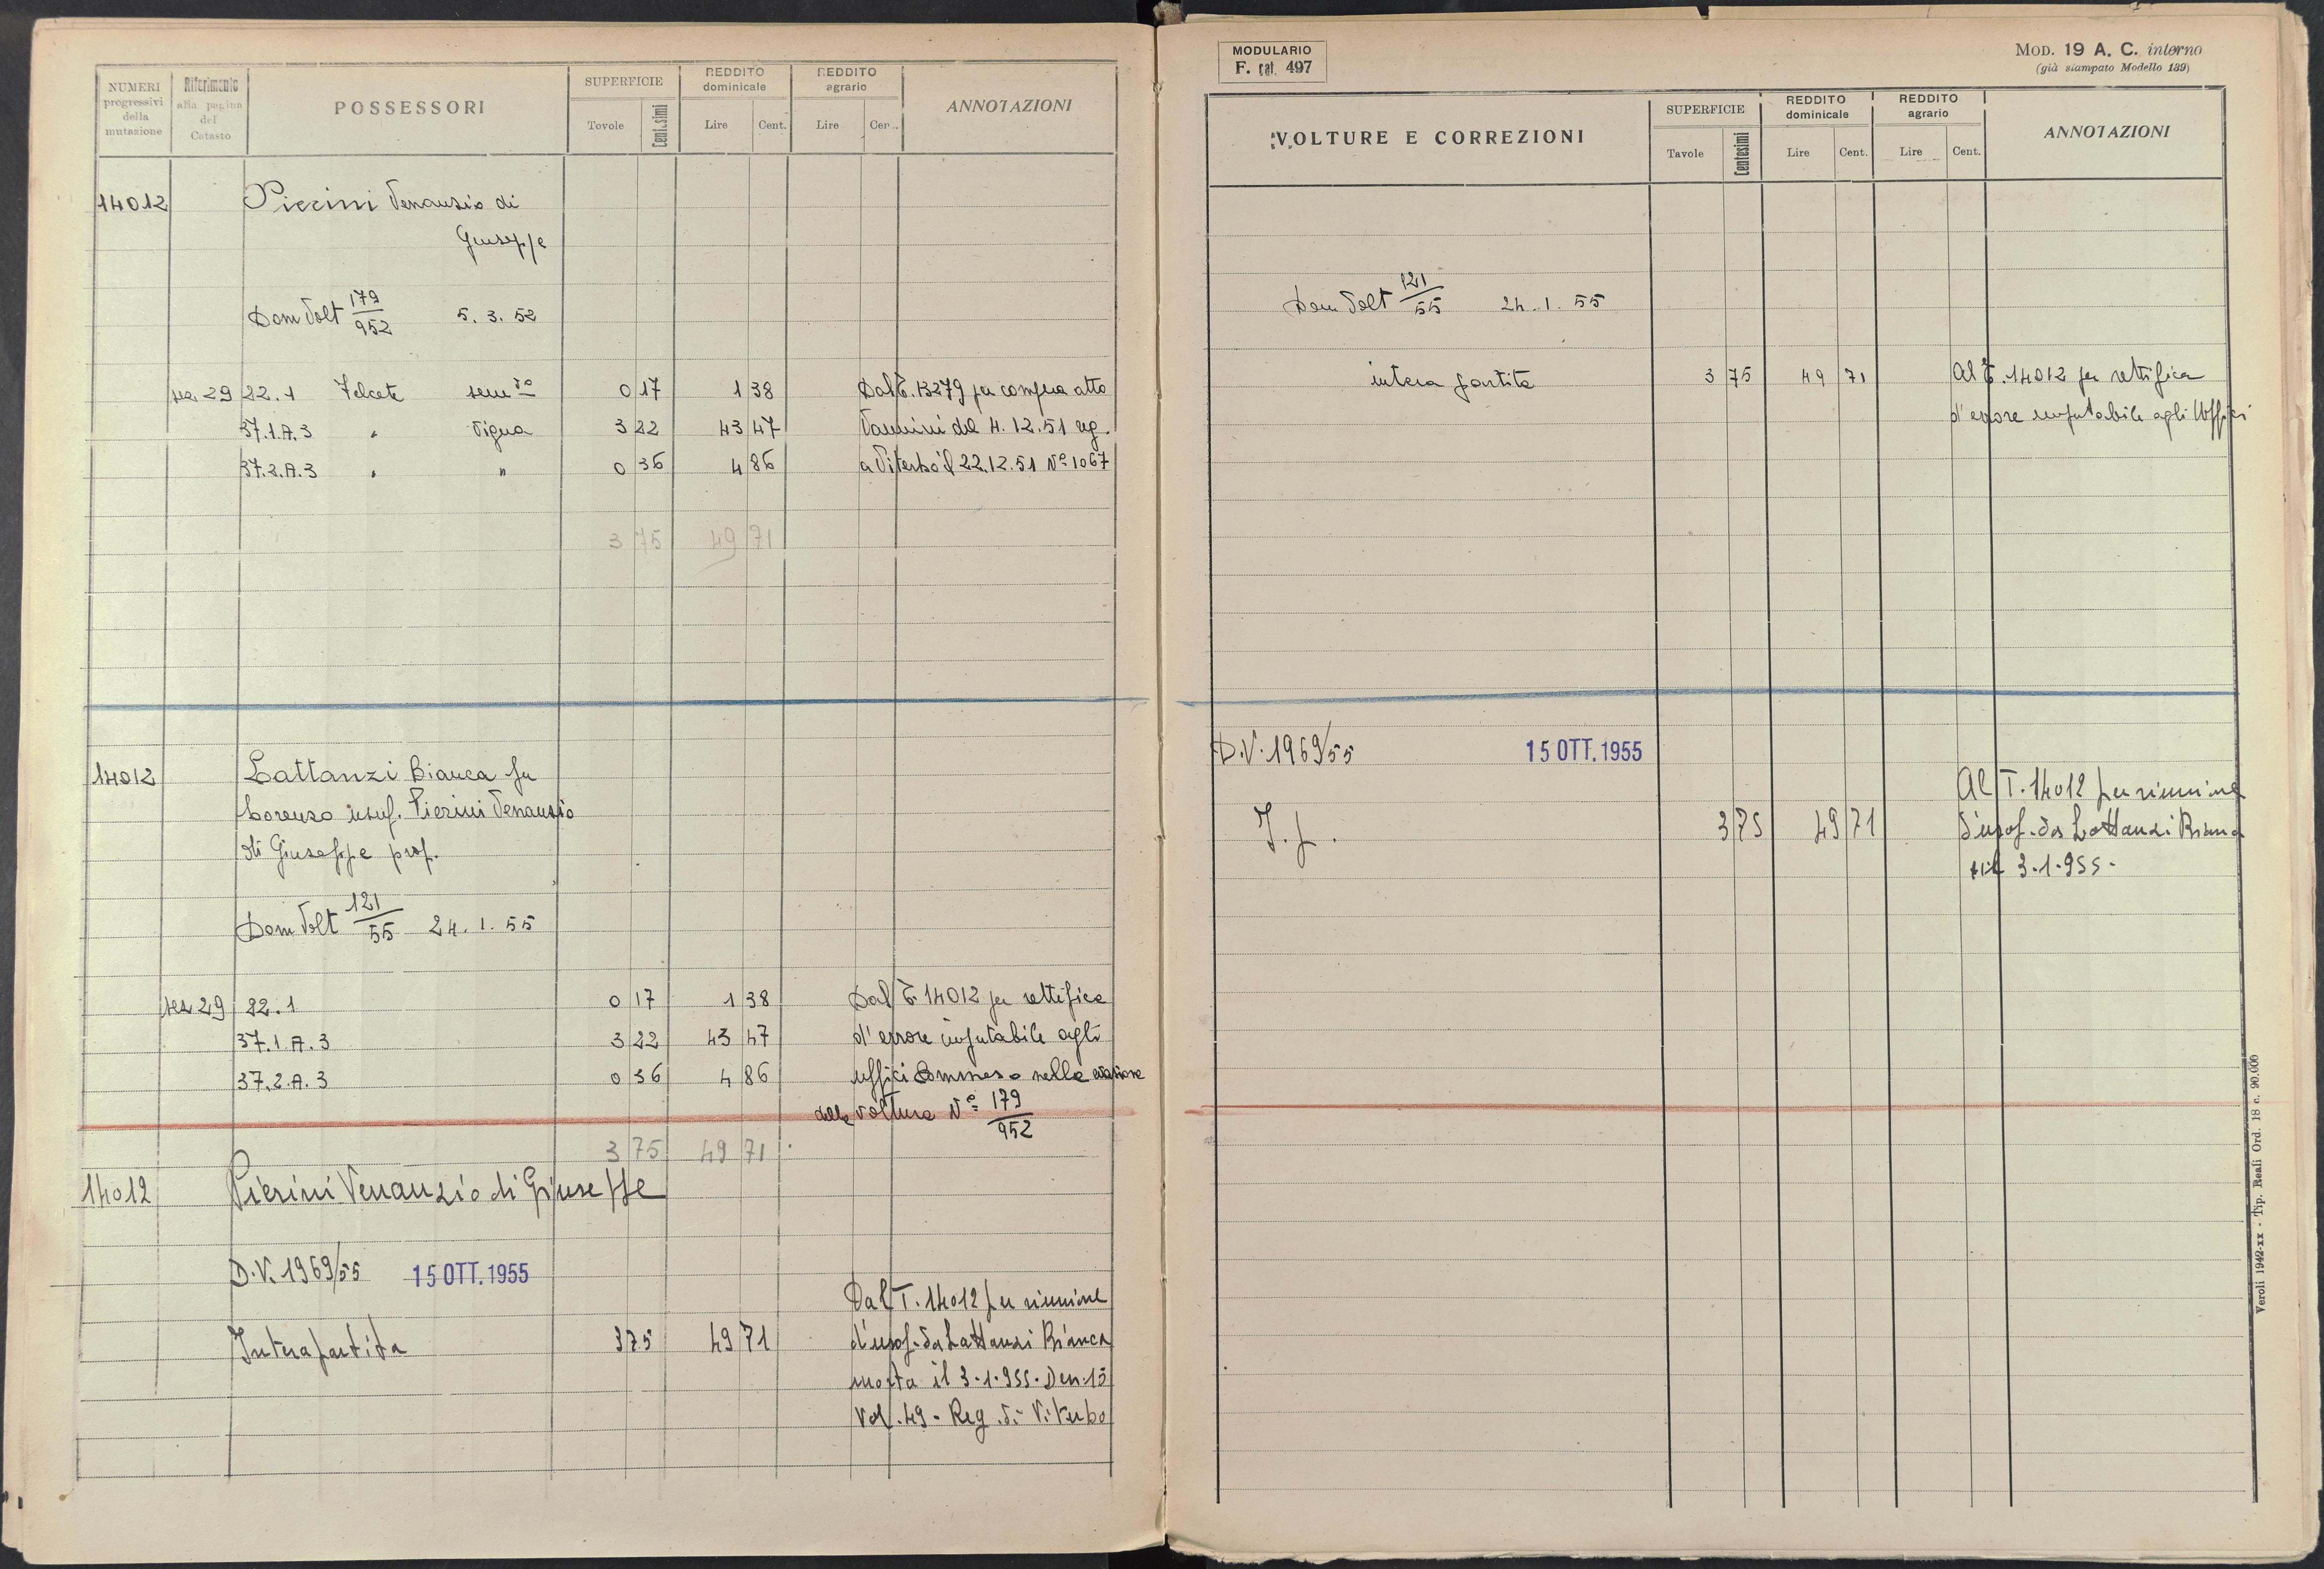 NUMERI progressivi della mutazione | Riferimento alla pagina del Catasto | POSSESSORI | SUPERFICIE Tavole Centesimi | REDDITO dominicale Lire Cent. | REDDITO agrario Lire Cent. | ANNOTAZIONI
14012 Pierini Venanzio di
Giuseppe
Dom Volt 179/952 5. 3. 52
sez. 29 22.1 Felcete sem.vo 0 17 1 38 Dal T. 13279 per compra atto
37.1.A.3 " Vigna 3 22 43 47 Vannini del 4.12.51 reg.
37.2.A.3 " " 0 36 4 86 a Viterbo il 22.12.51 N° 1067
3 75 49 71
14012 Lattanzi Bianca fu
Lorenzo usuf. Pierini Venanzio
di Giuseppe prop.
Dom Volt 121/55 24. 1. 55
sez. 29 22.1 0 17 1 38 Dal T. 14012 per rettifica
37.1.A.3 3 22 43 47 d'errore imputabile agli
37.2.A.3 0 36 4 86 uffici commesso nella evasione
della voltura N° 179/952
3 75 49 71
14012 Pierini Venanzio di Giuseppe
D.V. 1969/55 15 OTT. 1955
Dal T. 14012 per riunione
Intera partita 3 75 49 71 d'usuf. da Lattanzi Bianca
morta il 3.1.955. Den. 15
Vol. 49 - Reg. di Viterbo
MODULARIO
F. cat. 497
MOD. 19 A. C. interno
(già stampato Modello 189)
VOLTURE E CORREZIONI | SUPERFICIE Tavole Centesimi | REDDITO dominicale Lire Cent. | REDDITO agrario Lire Cent. | ANNOTAZIONI
Dom Volt 121/55 24. 1. 55
intera partita 3 75 49 71 Al T. 14012 per rettifica
d'errore imputabile agli Uffici
D.V. 1969/55 15 OTT. 1955
Al T. 14012 per riunione
I. p. 3 75 49 71 d'usuf. da Lattanzi Bianca
il 3.1.955.
Veroli 1942-XX - Tip. Reali Ord. 18 c. 90.000